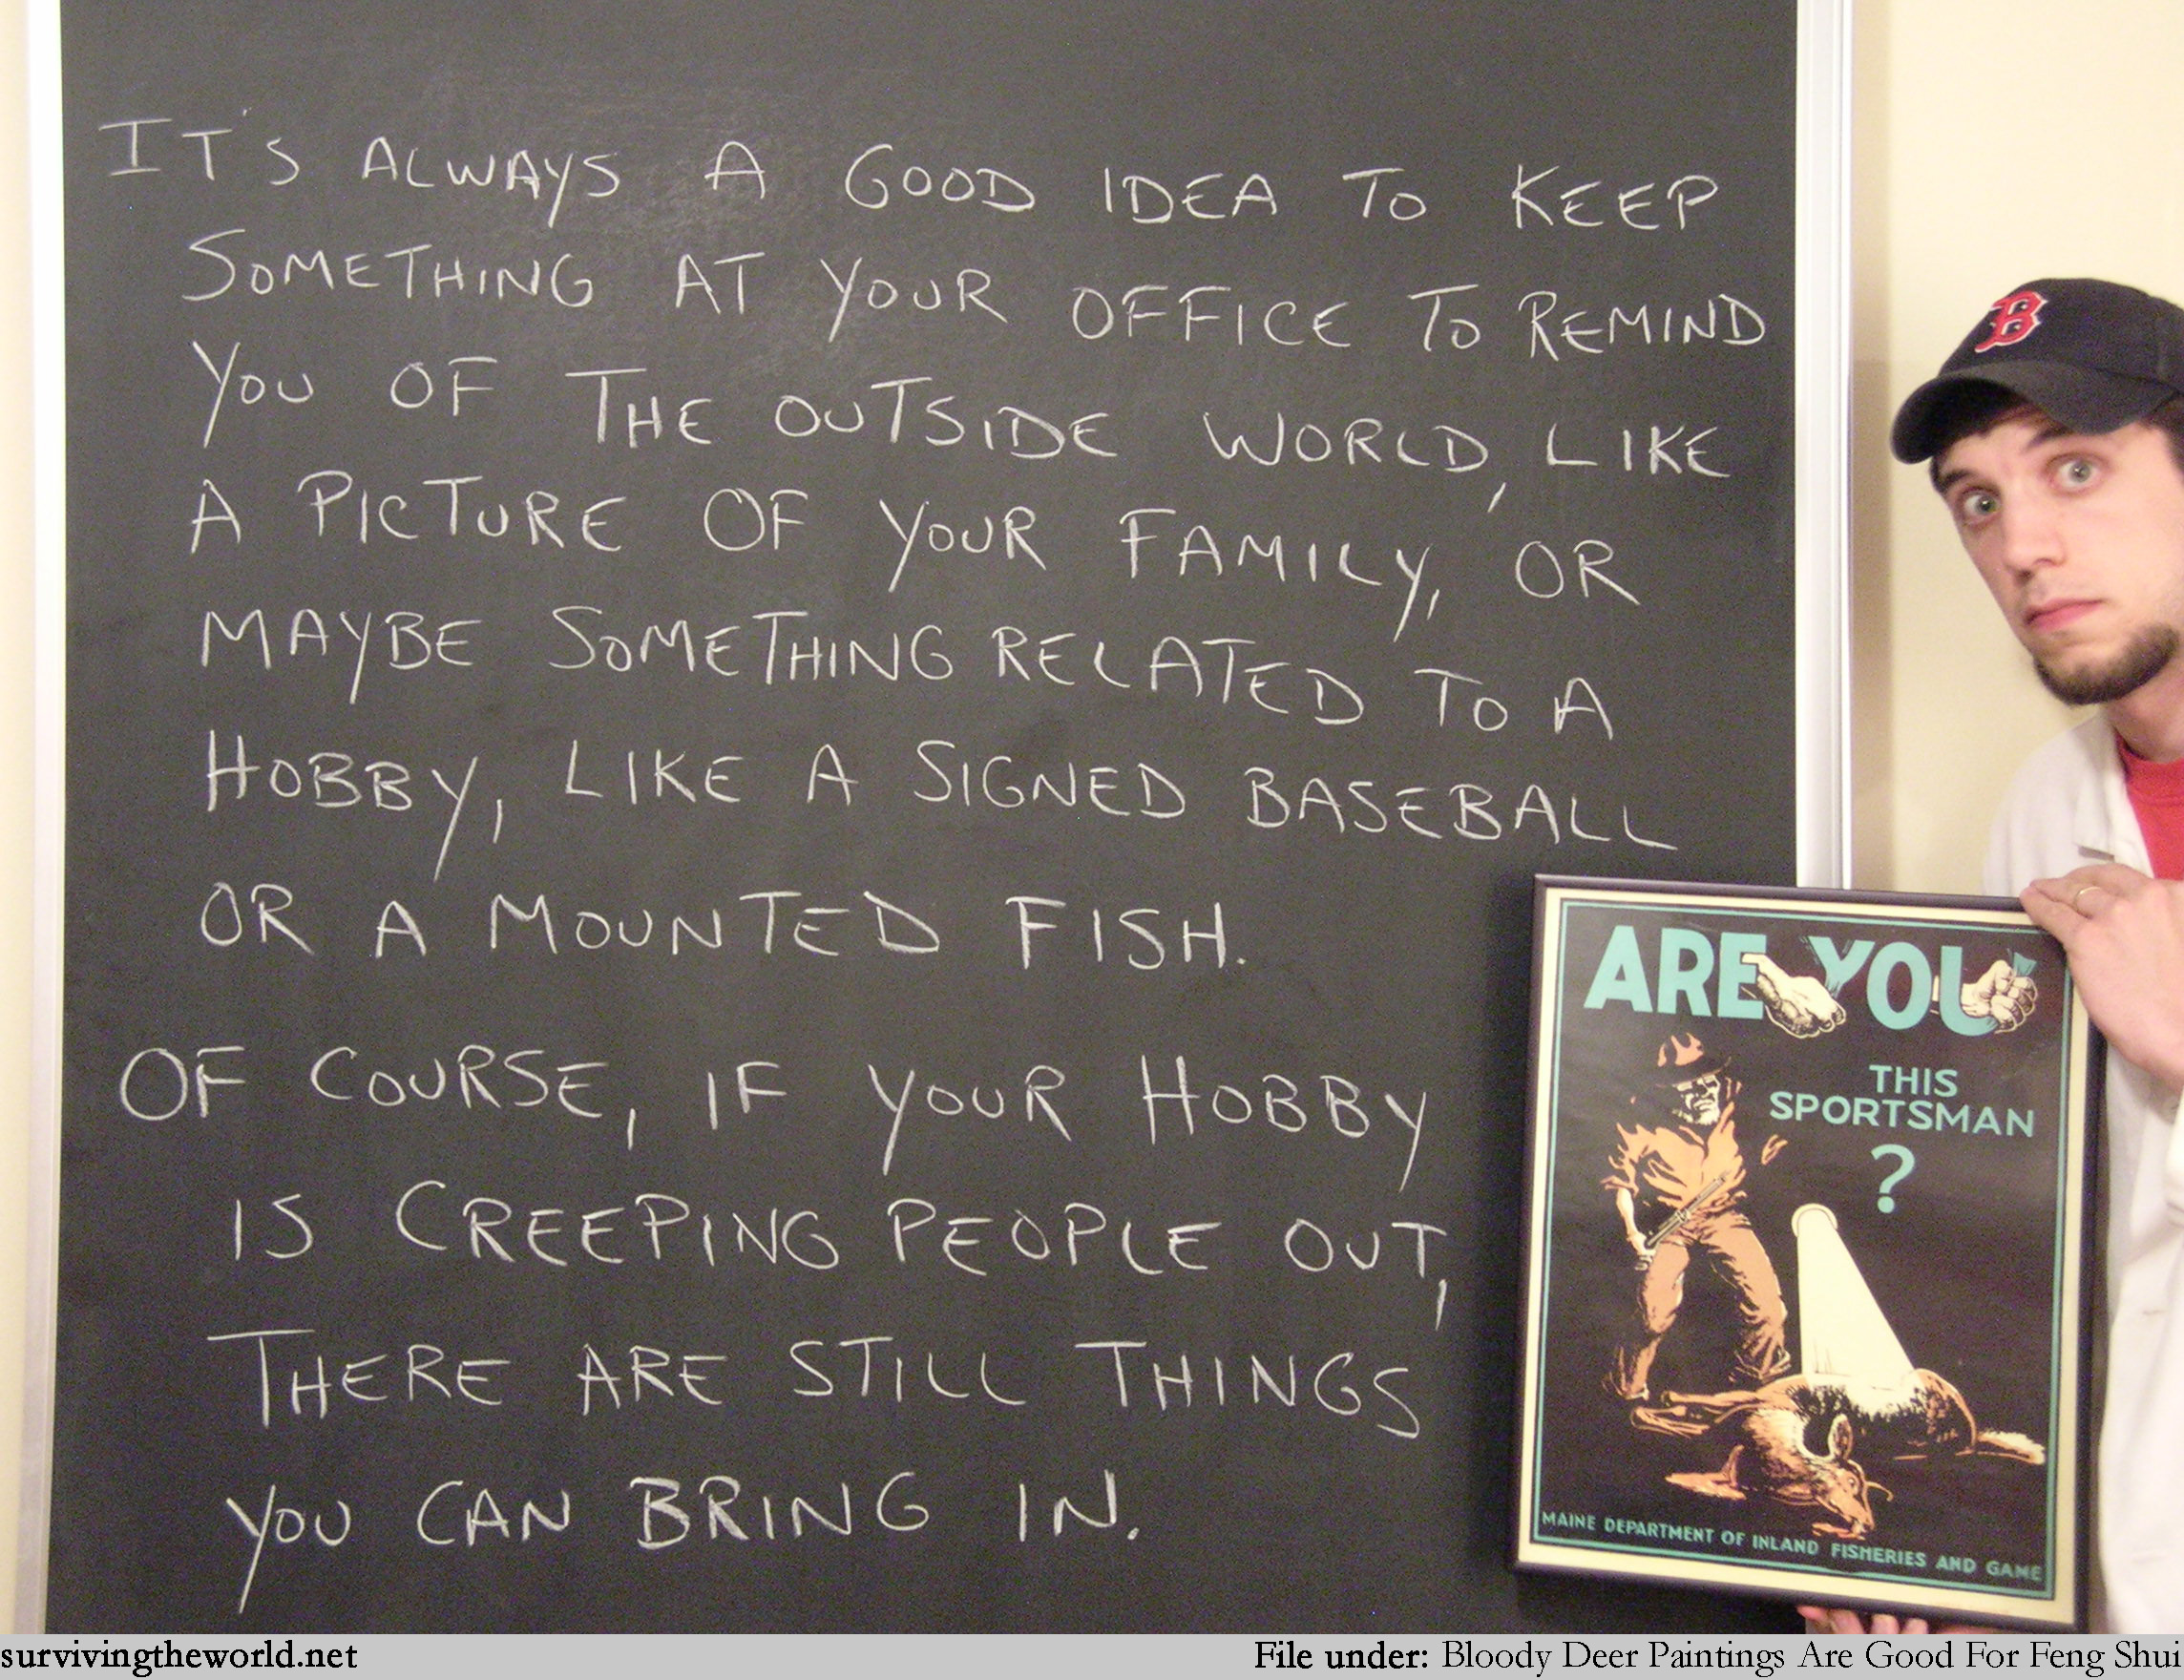 IT'S ALWAYS A GOOD IDEA TO KEEP
SOMETHING AT YOUR OFFICE TO REMIND
YOU OF THE OUTSIDE WORLD, LIKE
A PICTURE OF YOUR FAMILY, OR
MAYBE SOMETHING RELATED TO A
HOBBY, LIKE A SIGNED BASEBALL
OR A MOUNTED FISH.
OF COURSE, IF YOUR HOBBY
IS CREEPING PEOPLE OUT,
THERE ARE STILL THINGS
YOU CAN BRING IN.
B
ARE YOU
THIS
SPORTSMAN
?
MAINE DEPARTMENT OF INLAND FISHERIES AND GAME
survivingtheworld.net
File under: Bloody Deer Paintings Are Good For Feng Shui